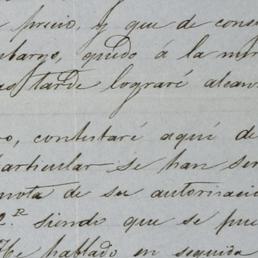 precio, y que de cons
mbargo, quedo á la mir
as tarde lograré alcan
ro, contestaré aquí de
articular se han ser
nota de su autorizació
2.ª siendo que se pue
He hablado en seguida